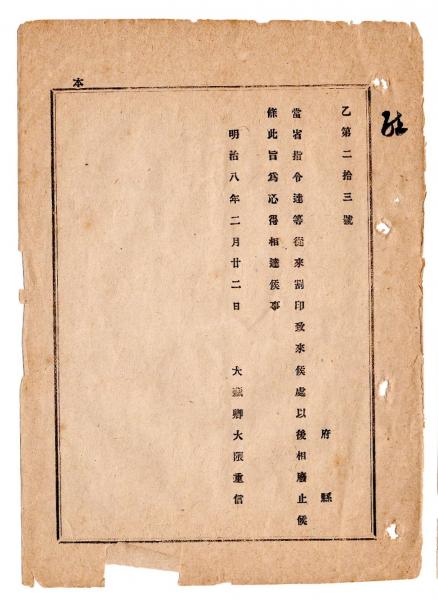 乙第二拾三號
府縣
當省指令達等從來割印致來候處以後相廢止候
條此旨爲心得相達候事
明治八年二月廿二日 大藏卿大隈重信
本